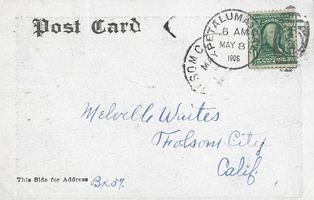 Post Card
PETALUMA
6 AM
MAY 8
1906
Melville Waites
Folsom City
Calif.
This Side for Address
Box 57.